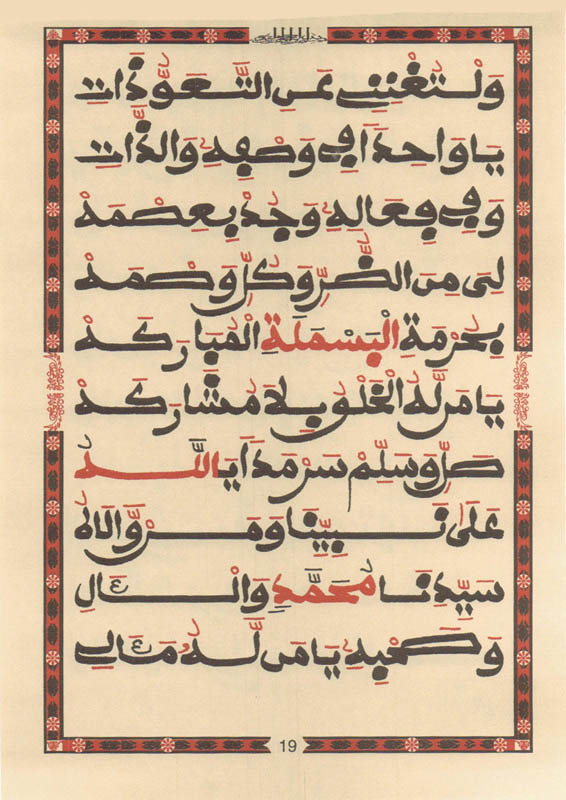 وَلْتُغْنِنِي عَنِ التَّعَوُّذَاتِ
يَا وَاحِدًا فِي وَصْفِهِ وَالذَّاتِ
وَفِي فِعَالِهِ وَجُدْ بِعِصْمَهْ
لِي مِنَ الضُّرِّ وَكُلِّ وَصْمَهْ
بِحُرْمَةِ الْبَسْمَلَةِ الْمُبَارَكَهْ
يَا مَن لَّهُ الْخَلْقُ بِلَا مُشَارَكَهْ
صَلِّ وَسَلِّمْ سَرْمَدًا يَا اللَّه
عَلَى نَبِيِّنَا وَمَن وَّالَاهُ
سَيِّدِنَا مُحَمَّدٍ وَالْآلِ
وَصَحْبِهِ يَا مَن لَّهُ مَآلِي
19